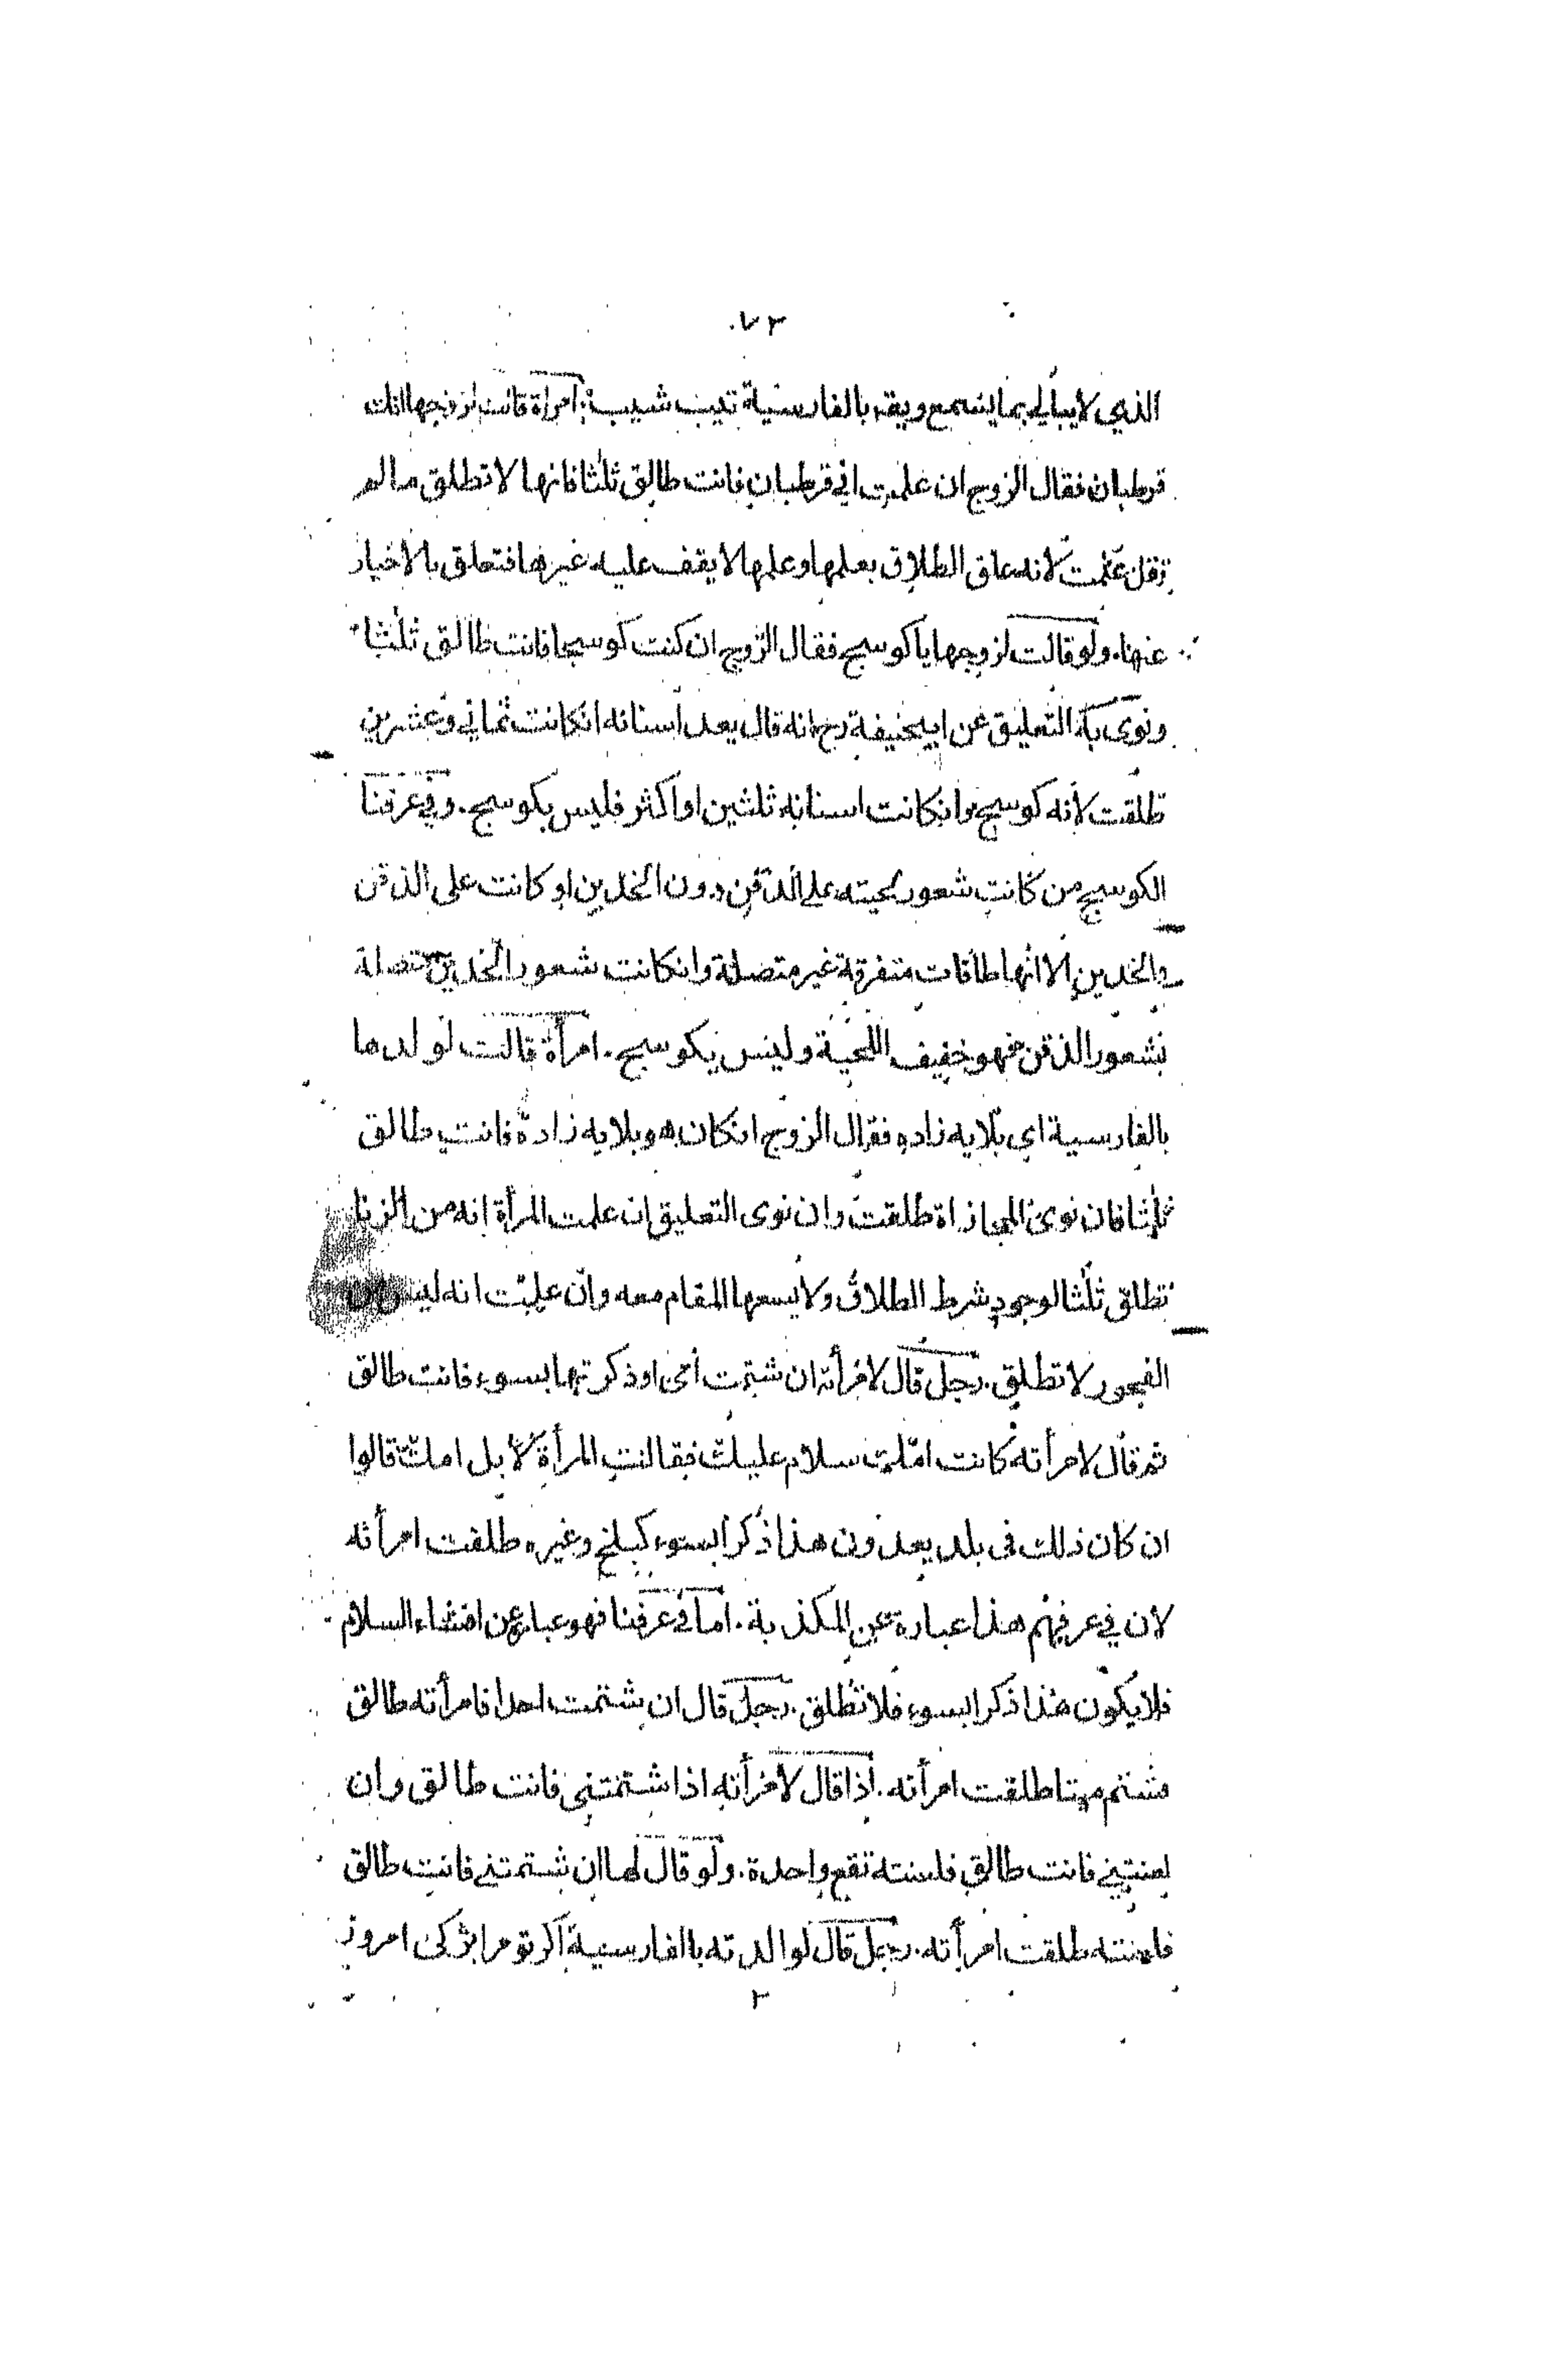 ٧٢
الذي لايبالي بما يسمع ويقر بالفارسية تيب شيب. امرأة قالت لزوجها انك
قرطبان فقال الزوج ان علمت اني قرطبان فانت طالق ثلثا فانها لا تطلق مالم
تقل علمت لانه علق الطلاق بعلمها وعلمها لا يقف عليه غيرها فتعلق بالاخبار
عنها. ولو قالت لزوجها ياكوسج فقال الزوج ان كنت كوسجا فانت طالق ثلثا
ونوى به التعليق عن ابيحنيفة رح انه قال يعد اسنانه انكانت ثماني وعشرين
طلقت لانه كوسج وانكانت اسنانه ثلثين او اكثر فليس بكوسج. وفي عرفنا
الكوسج من كانت شعور لحيته على الذقن دون الخدين او كانت على الذقن
والخدين الا انها طاقات متفرقة غير متصلة وانكانت شعور الخدين متصلة
بشعور الذقن فهو خفيف اللحية وليس بكوسج. امرأة قالت لولدها
بالفارسية اى بلايه زاده فقال الزوج انكان هو بلايه زادة فانت طالق
ثلثا فان نوى المجازاة طلقت وان نوى التعليق ان علمت المرأة انه من الزنا
تطلق ثلثا لوجود شرط الطلاق ولا يسعها المقام معه وان علمت انه ليس من
الفجور لا تطلق. رجل قال لامرأته ان شتمت أمى او ذكرتها بسوء فانت طالق
ثم قال لامرأته كانت امك سلام عليك فقالت المرأة لا بل امك قالوا
ان كان ذلك فى بلد يعدون هذا ذكرا بسوء كبلخ وغيره طلقت امرأته
لان في عرفهم هذا عبارة عن المكذبة. اما في عرفنا فهو عبارة عن افشاء السلام
فلا يكون هذا ذكرا بسوء فلا تطلق. رجل قال ان شتمت احدا فامرأته طالق
فشتم ميتا طلقت امرأته. اذا قال لامرأته اذا شتمتنى فانت طالق وان
لعنتيني فانت طالق فلعنته تقع واحدة. ولو قال لها ان شتمتني فانت طالق
فلعنته طلقت امرأته. رجل قال لوالدته باالفارسية اكر تو مرا بزكى امروز
٢